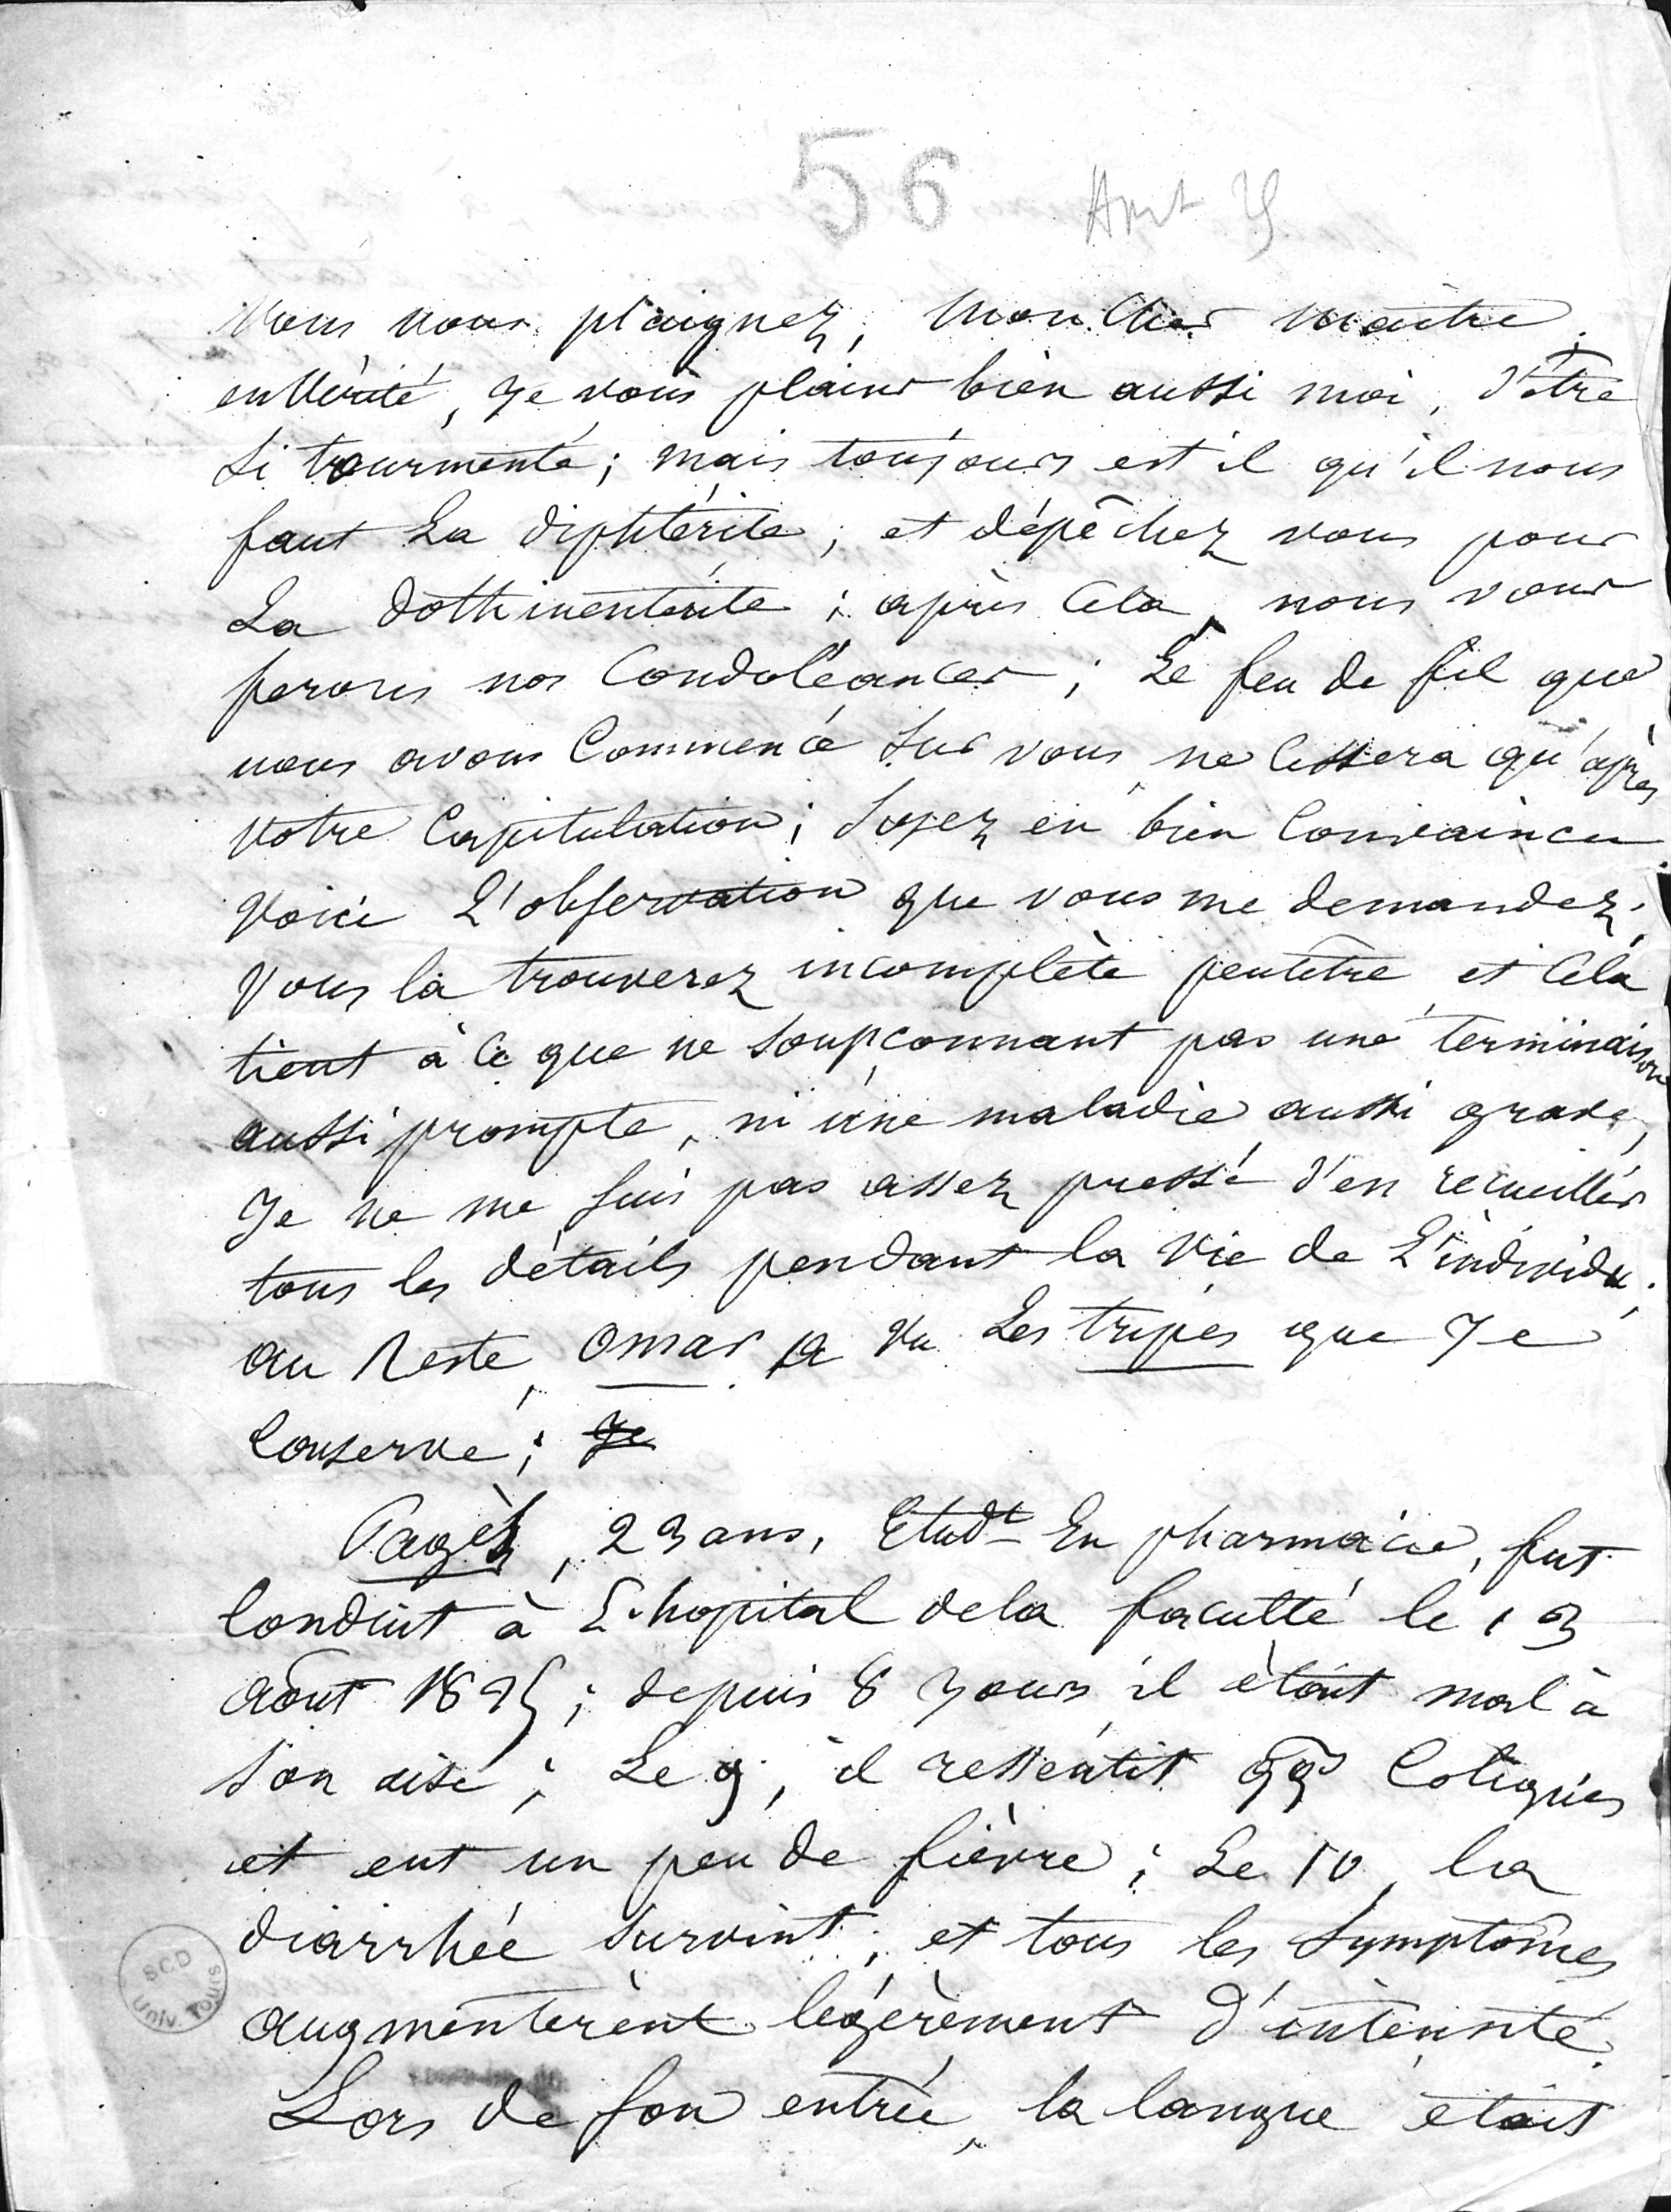 56 Aout 25
Vous vous plaignez, mon cher maitre,
en vérité, je vous plains bien aussi moi, d'être
si tourmenté; mais toujours est il qu'il nous
faut La diphtérite; et dépêchez vous pour
La dothinentérite; après cela, nous vous
ferons nos condoléances; Le feu de fil que
nous avons commencé sur vous ne cessera qu'après
votre capitulation; soyez en bien convaincu
Voici L'observation que vous me demandez;
Vous la trouverez incomplète peutetre et cela
tient à ce que ne soupçonnant pas une terminaison
aussi prompte, ni une maladie aussi grave,
Je ne me suis pas assez pressé d'en recueillir
tous les détails pendant la vie de L'individu;
au Reste, Omar a vu Les tripes que Je
conserve; Je
Pagès, 23 ans, Etudt En pharmacie, fut
conduit à L'hopital dela faculté le 13
Août 1825; depuis 8 jours il étoit mal à
son aise; Le 9, il ressentit qqs coliques
et eut un peu de fièvre; Le 10, la
diarrhée survint; et tous les symptômes
augmentèrent légèrement d'intensité.
Lors de son entrée, la langue étoit
SCD
Univ. Tours